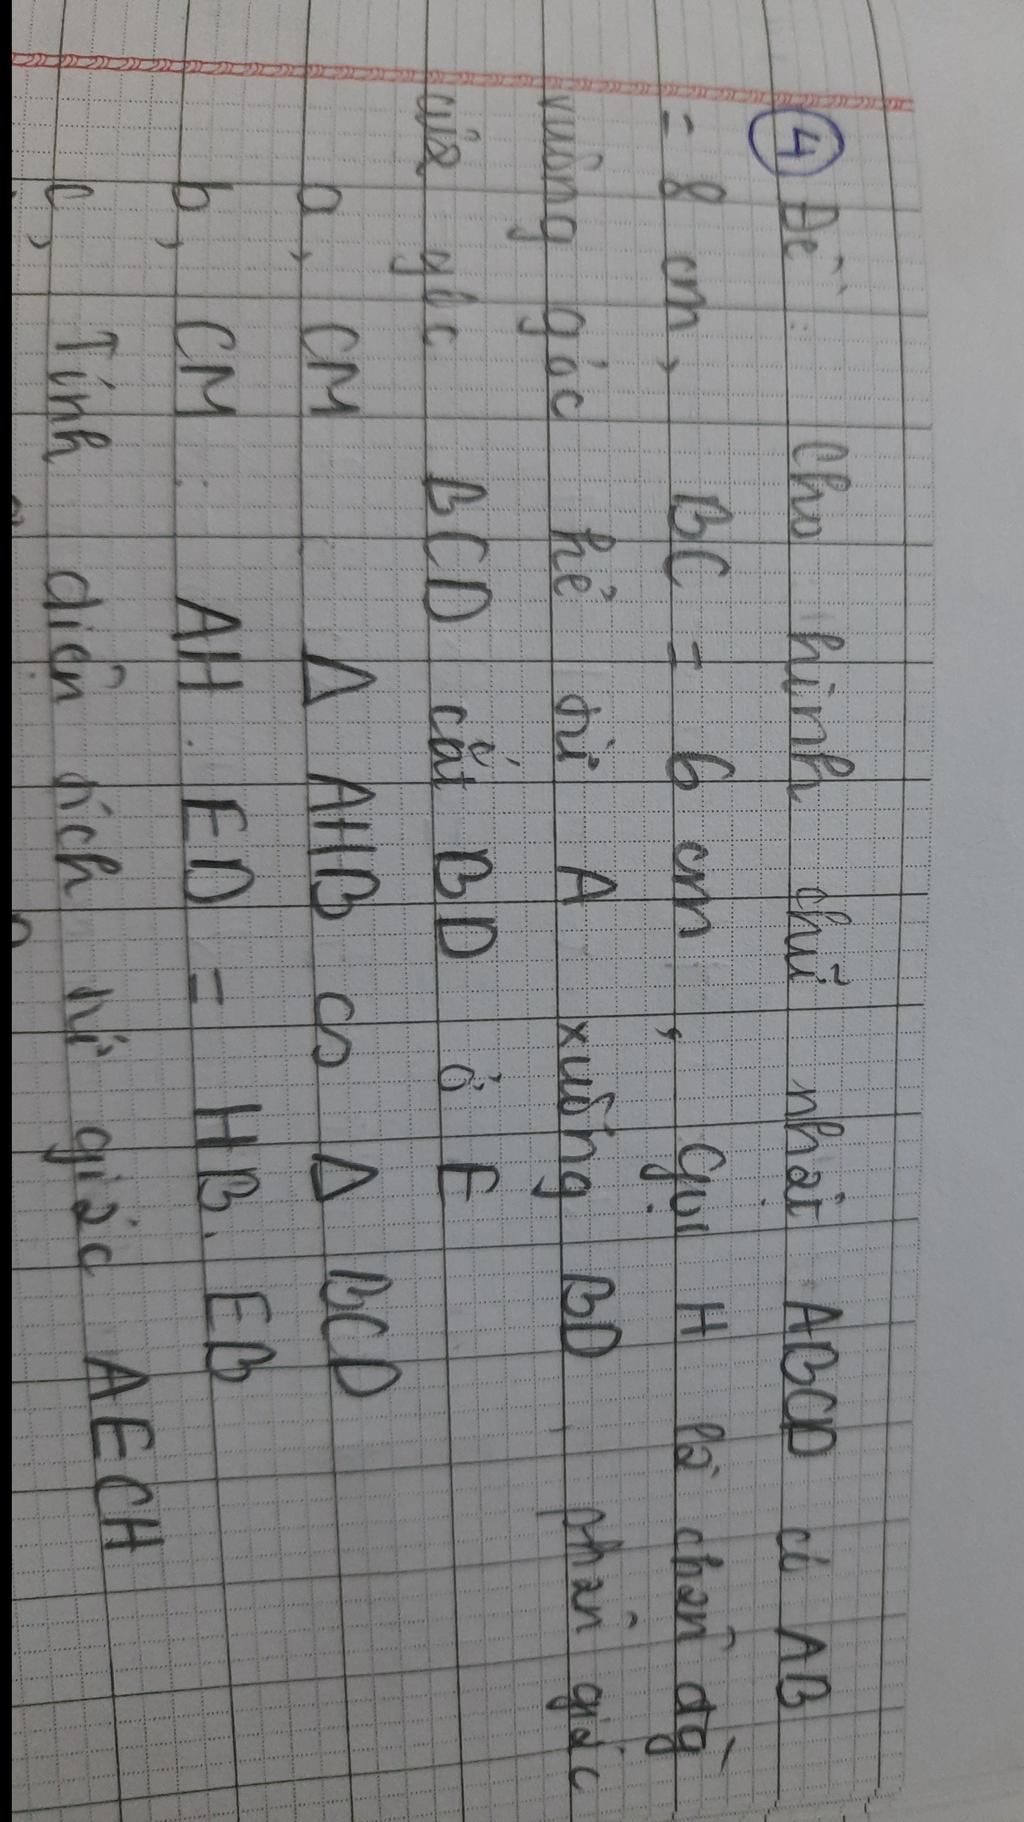 ④ Đề: Cho hình chữ nhật ABCD có AB
= 8 cm, BC = 6 cm, Gọi H là chân đg̀
vuông góc kẻ từ A xuống BD, phân giác
của góc BCD cắt BD ở E
a, CM: Δ AHB ∽ Δ BCD
b, CM: AH. ED = HB. EB
c, Tính diện tích tứ giác AECH